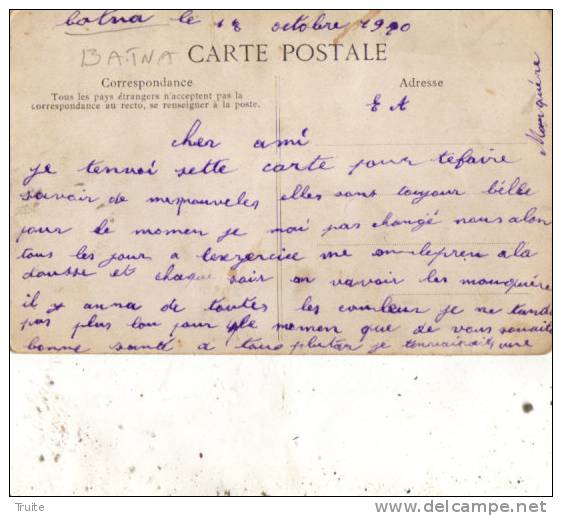 batna le 18 octobre 1910
BATNA
CARTE POSTALE
Correspondance
Tous les pays étrangers n'acceptent pas la
correspondance au recto, se renseigner à la poste.
Adresse
E A
Mouquère
cher ami
je tenvoi sette carte pour te faire
savoir de mes nouveles elles sont toujour bélle
pour le momen je nai pas changé nous alon
tous les jour a lexercice me on lepren a la
dousse et chaque soir on va voir les mouquére
il y auna de toutes les couleur je ne tandi
pas plus lon pour le momen que de vous souaite
bonne santé a tous plutar je tenvairait une
Truite
http://www.delcampe.net